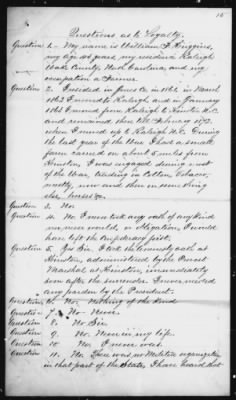 16
Questions as to Loyalty.
Question 1. My name is William F. Huggins,
my age 46 years, my residence Raleigh
Wake County, North Carolina, and my
occupation a Farmer.
Question 2. I resided in Jones Co. in 1861. in March
1862 I moved to Raleigh, and in January
1863 I moved from Raleigh to Kinston N.C.
and remained there till February 1873.
when I moved up to Raleigh N.C. During
the last year of the War I had a small
farm carried on about 5 miles from
Kinston, I was engaged during most
of the War, trading in Cotton, Tobacco,
mostly, now and then in some thing
else,
Question 3. No.
Question 4. No. I never took any oath of any kind
no, never would, or obligation, I would
have left the Confederacy first.
Question 5. Yes Sir, I took the amnesty oath at
Kinston, administered by the Provost
Marshal at Kinston, immediately
soon after the surrender. I never
any pardon by the President.
Question 6. No. Nothing of the kind.
Question 7. No. Never.
Question 8. No Sir.
Question 9. No. Never in my life.
Question 10. No. I never was.
Question 11. No. There was no Militia organization
in that part of the State, I have heard that